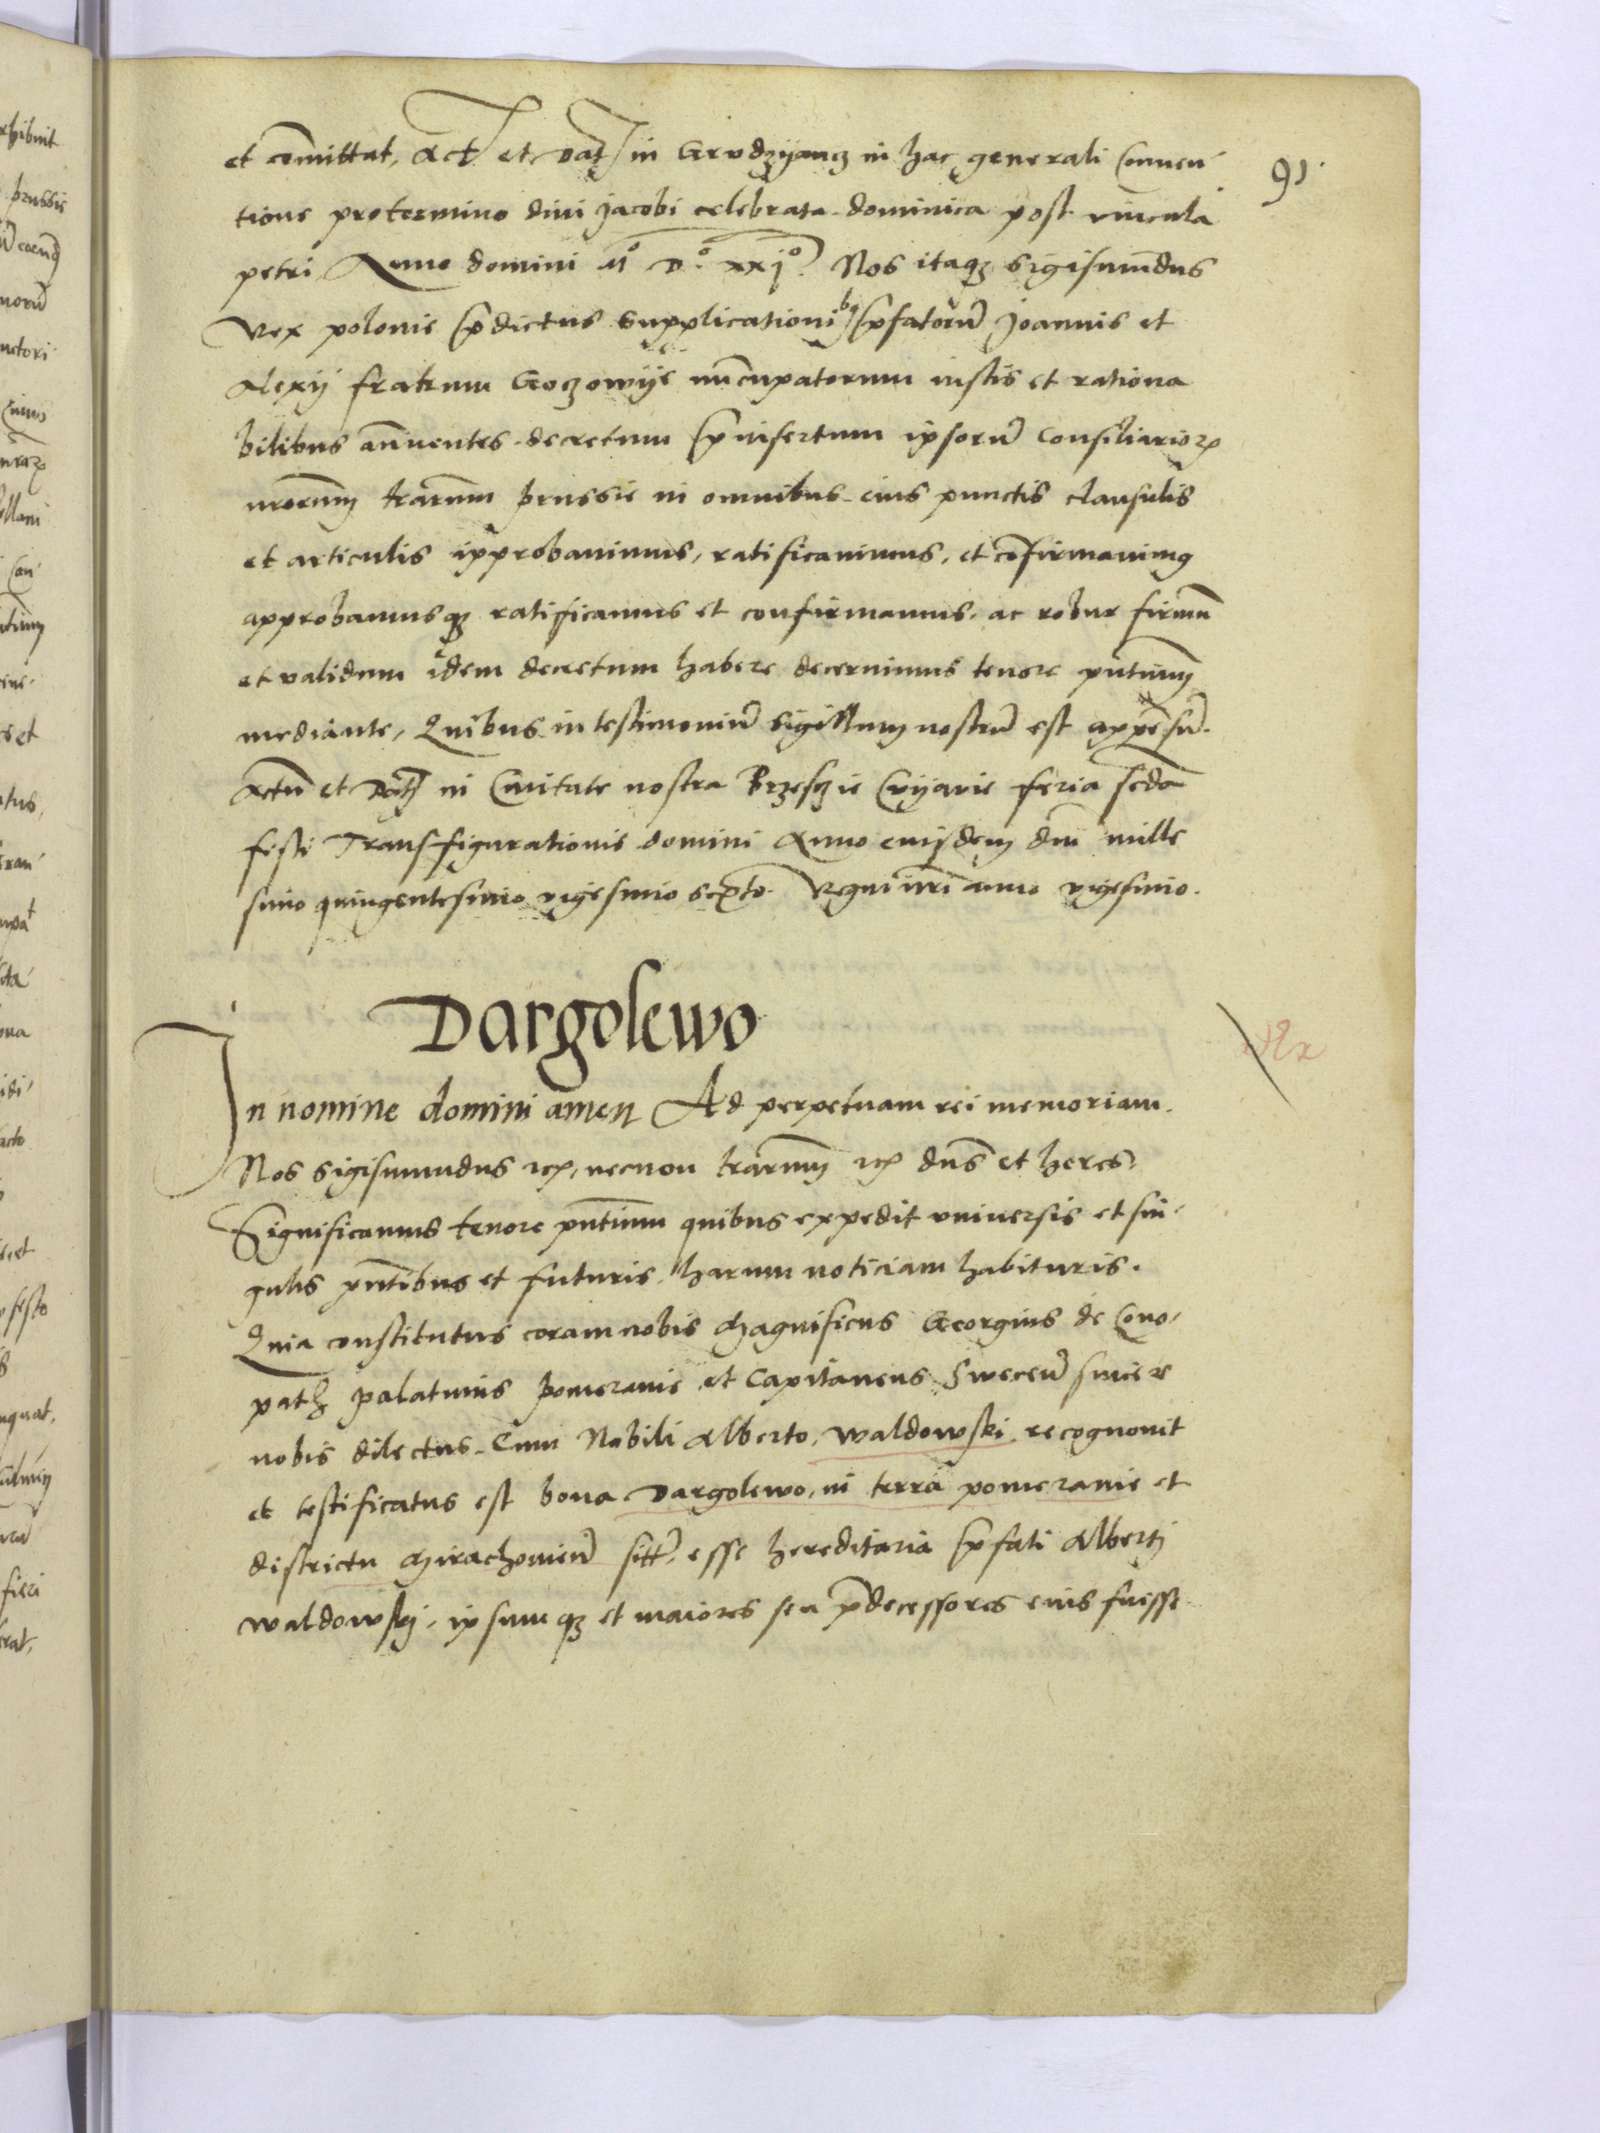 91.
et co͞mittat, Act et Dat in Grudzyancz in hac generali Conuen-
tione pro termino diui Jacobi celebrata dominica post vincula
petri Anno domini Mº Dº. xxjº. Nos itaqȝ Sigismu͞dus
Rex polonie p͞dictus Supplicationibꝰ p͞fatoru͞ Joannis et
Alexij fratrum Goczowije nu͞cupatorum iustis et rationa
bilibus an͞uentes decretum p͞insertum ipsoru͞ Consiliarioꝝ
nr͞orum tr͞arum prussie in omnibus eius punctis clausulis
et articulis approbauimus, ratificauimus, et co͞firmauimꝰ
approbamusqȝ ratificamus et confirmamus. ac robur firmu͞
et validum idem decretum habere decernimus tenore pn͞tium
mediante, Quibus in testimoniu͞ Sigillum nostru͞ est appe͞su͞.
Actu͞ et Dat in Ciuitate nostra Brzescz ie Cuyauie feria sc͞da
festi Transfigurationis domini Anno eiusdem dn͞i mille
simo quingentesimo vigesimo sexto. Regni nr͞i anno vigesimo.
Dargolewo
In nomine domini amen Ad perpetuam rei memoriam.
Nos Sigismundus ꝛcꝫ, necnon tr͞arum ꝛcꝫ dn͞s et heres.
Significamus tenore pn͞tium quibus expedit vniuersis et sin-
gulis pn͞tibus et futuris harum noticiam habituris.
Quia constitutus coram nobis Magnificus Georgius de Cono-
path palatinus pomeranie et Capitaneus Sweceu͞ sincere
nobis dilectus. Cum Nobili Alberto, Waldowski recognouit
et testificatus est bona Dargolewo, in terra pomeranie et
districtu Mirachouieu͞ sitt͞, esse hereditaria p͞fati Alberti
Waldowskj, ipsumqȝ et maiores seu p͞decessores eius fuisse